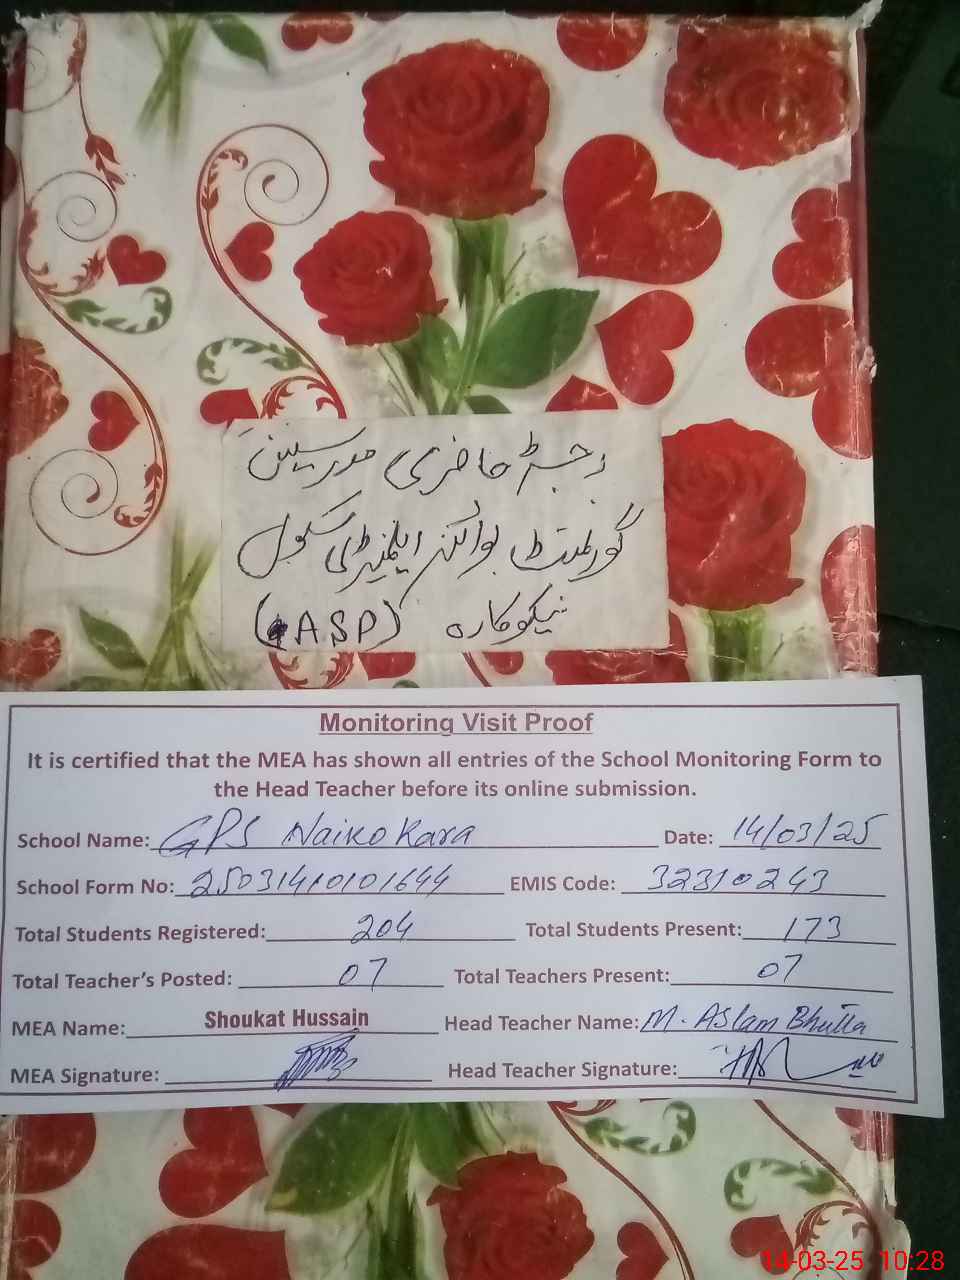 رجسٹر حاضری مدرسین
گورنمنٹ بوائز ایلیمنٹری سکول
نیکوکارہ (ASP)
Monitoring Visit Proof
It is certified that the MEA has shown all entries of the School Monitoring Form to
the Head Teacher before its online submission.
School Name: GPS Naiko Kara Date: 14/03/25
School Form No: 25031410101644 EMIS Code: 32310243
Total Students Registered: 204 Total Students Present: 173
Total Teacher's Posted: 07 Total Teachers Present: 07
MEA Name: Shoukat Hussain Head Teacher Name: M. Aslam Bhutta
MEA Signature: Head Teacher Signature:
14-03-25 10:28